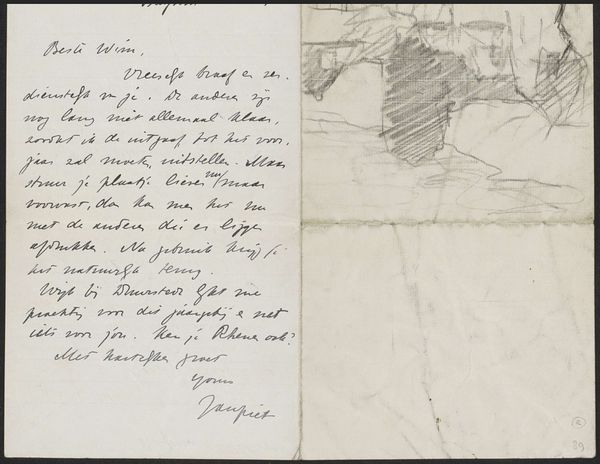 Beste Wim,
Vreeselijk braaf en ver-
dienstelijk van je. De anderen zijn
nog lang niet allemaal klaar,
zoodat ik de uitgaaf tot het voor-
jaar zal moeten uitstellen. Maar
stuur je plaatje liever nu maar
vooruit, dan kan men het nu
met de anderen die er liggen
afdrukken. Na gebruik krijg je
het natuurlijk terug.
Wijk bij Duurstede lijkt me
prachtig voor dit jaargetij en net
iets voor jou. Ken je Rhenen ook?
Met hartelijken groet
yours
Jan Piet
89